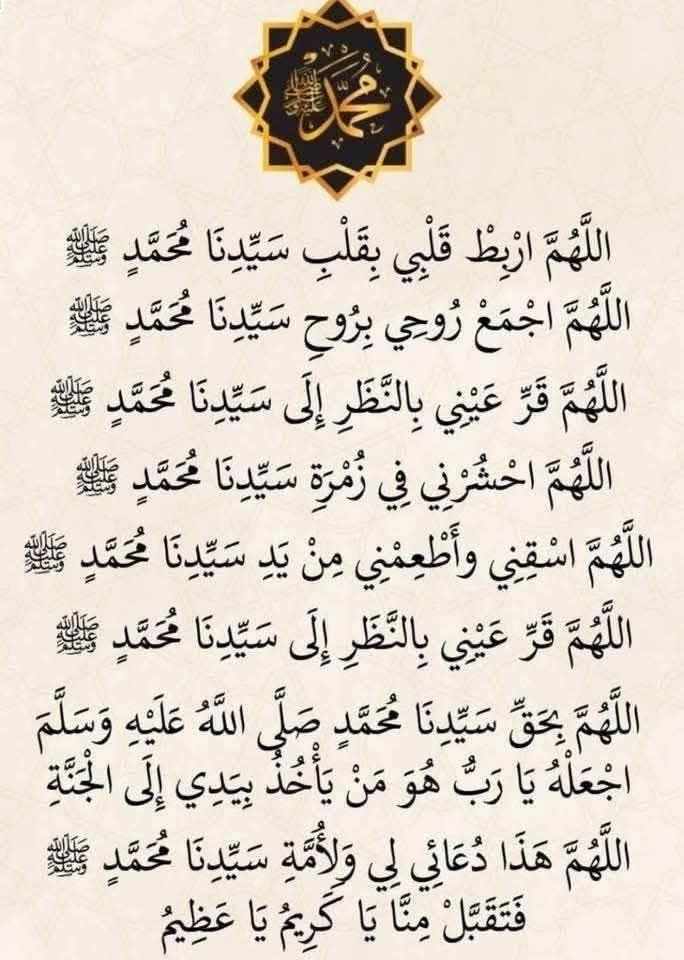 محمد ﷺ
اللَّهُمَّ ارْبِطْ قَلْبِي بِقَلْبِ سَيِّدِنَا مُحَمَّدٍ ﷺ
اللَّهُمَّ اجْمَعْ رُوحِي بِرُوحِ سَيِّدِنَا مُحَمَّدٍ ﷺ
اللَّهُمَّ قَرِّ عَيْنِي بِالنَّظَرِ إِلَى سَيِّدِنَا مُحَمَّدٍ ﷺ
اللَّهُمَّ احْشُرْنِي فِي زُمْرَةِ سَيِّدِنَا مُحَمَّدٍ ﷺ
اللَّهُمَّ اسْقِنِي وأَطْعِمْنِي مِنْ يَدِ سَيِّدِنَا مُحَمَّدٍ ﷺ
اللَّهُمَّ قَرِّ عَيْنِي بِالنَّظَرِ إِلَى سَيِّدِنَا مُحَمَّدٍ ﷺ
اللَّهُمَّ بِحَقِّ سَيِّدِنَا مُحَمَّدٍ صَلَّى اللَّهُ عَلَيْهِ وَسَلَّمَ
اجْعَلْهُ يَا رَبُّ هُوَ مَنْ يَأْخُذُ بِيَدِي إِلَى الْجَنَّةِ
اللَّهُمَّ هَذَا دُعَائِي لِي وَلأُمَّةِ سَيِّدِنَا مُحَمَّدٍ ﷺ
فَتَقَبَّلْ مِنَّا يَا كَرِيمُ يَا عَظِيمُ